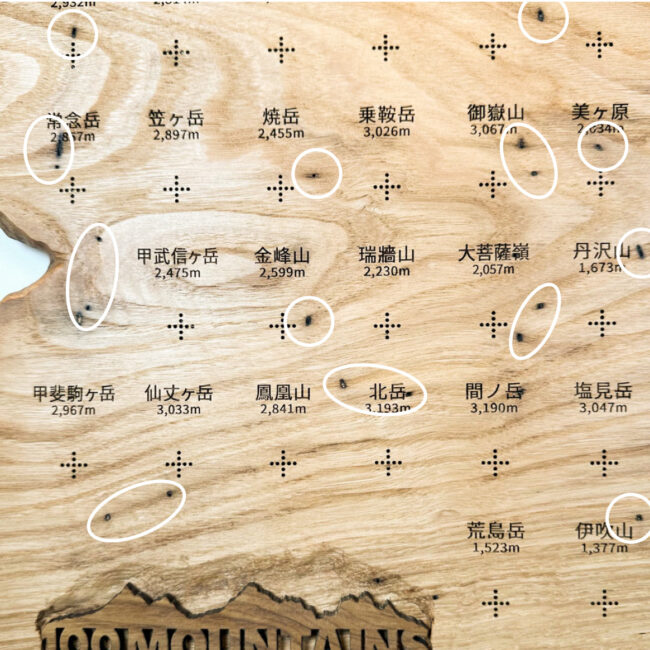 2,932m
常念岳 笠ヶ岳 焼岳 乗鞍岳 御嶽山 美ヶ原
2,857m 2,897m 2,455m 3,026m 3,067m 2,034m
甲武信ヶ岳 金峰山 瑞牆山 大菩薩嶺 丹沢山
2,475m 2,599m 2,230m 2,057m 1,673m
甲斐駒ヶ岳 仙丈ヶ岳 鳳凰山 北岳 間ノ岳 塩見岳
2,967m 3,033m 2,841m 3,193m 3,190m 3,047m
荒島岳 伊吹山
1,523m 1,377m
100 MOUNTAINS